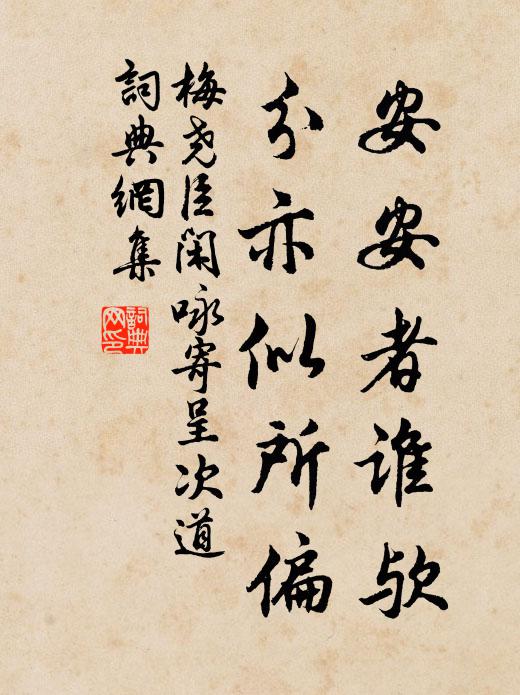 安安者谁欤
分亦似所偏
梅尧臣闲咏寄呈次道
詞典網集
詞典网印